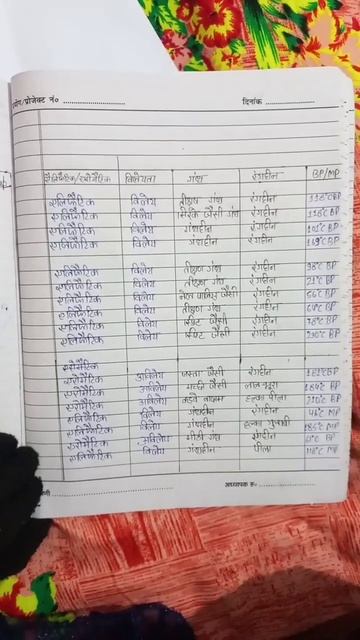 प्रयोग/प्रोजेक्ट नं० ........................ दिनांक ....................
ऐलिफैटिक/एरोमैटिक विलेयता गंध रंगहीन BP/MP
एलिफैटिक विलेय तीक्ष्ण गंध रंगहीन 118°C BP
एलिफैटिक विलेय सिरके जैसी गंध रंगहीन 118°C BP
एलिफैटिक विलेय गंधहीन रंगहीन 101°C BP
एलिफैटिक विलेय गंधहीन रंगहीन 169°C BP
एलिफैटिक विलेय तीक्ष्ण गंध रंगहीन 98°C BP
एलिफैटिक विलेय तीक्ष्ण गंध रंगहीन 21°C BP
एलिफैटिक विलेय जैसी रंगहीन 56°C BP
एलिफैटिक विलेय तीक्ष्ण गंध रंगहीन BP
एलिफैटिक विलेय स्प्रिट जैसी रंगहीन 78°C BP
एलिफैटिक विलेय स्प्रिट जैसी रंगहीन 290°C BP
एरोमैटिक अविलेय जैसी रंगहीन BP
एरोमैटिक अविलेय जैसी लाल भूरा 184°C BP
एरोमैटिक अविलेय कड़वे बादाम हल्का पीला 210°C BP
एलिफैटिक विलेय गंधहीन रंगहीन MP
एरोमैटिक विलेय गंधहीन हल्का गुलाबी MP
एरोमैटिक अविलेय मीठी गंध रंगहीन BP
एलिफैटिक विलेय गंधहीन पीला MP
अध्यापक ह० ....................